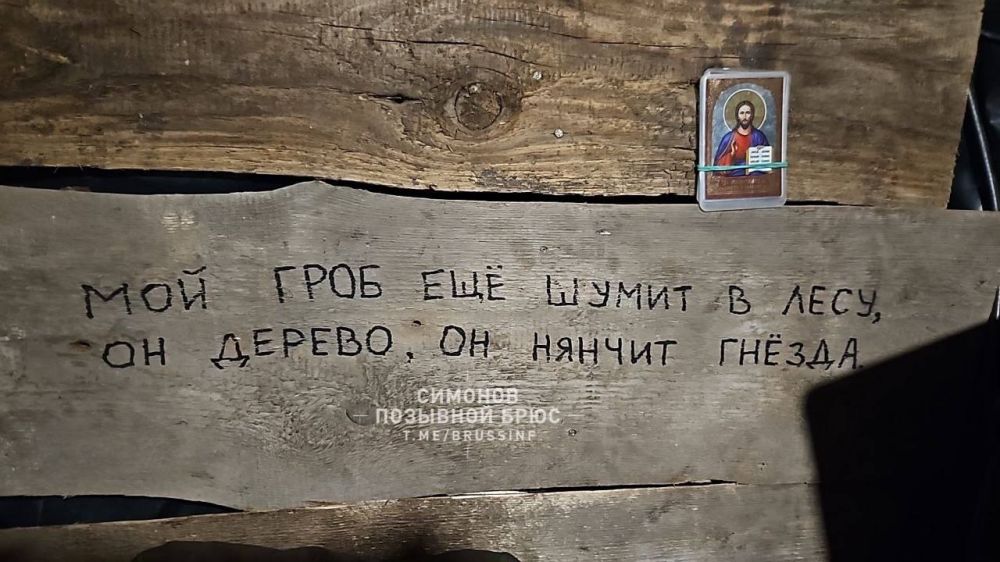 МОЙ ГРОБ ЕЩЁ ШУМИТ В ЛЕСУ,
ОН ДЕРЕВО, ОН НЯНЧИТ ГНЁЗДА.
СИМОНОВ
ПОЗЫВНОЙ БРЮС
T.ME/BRUSSINF